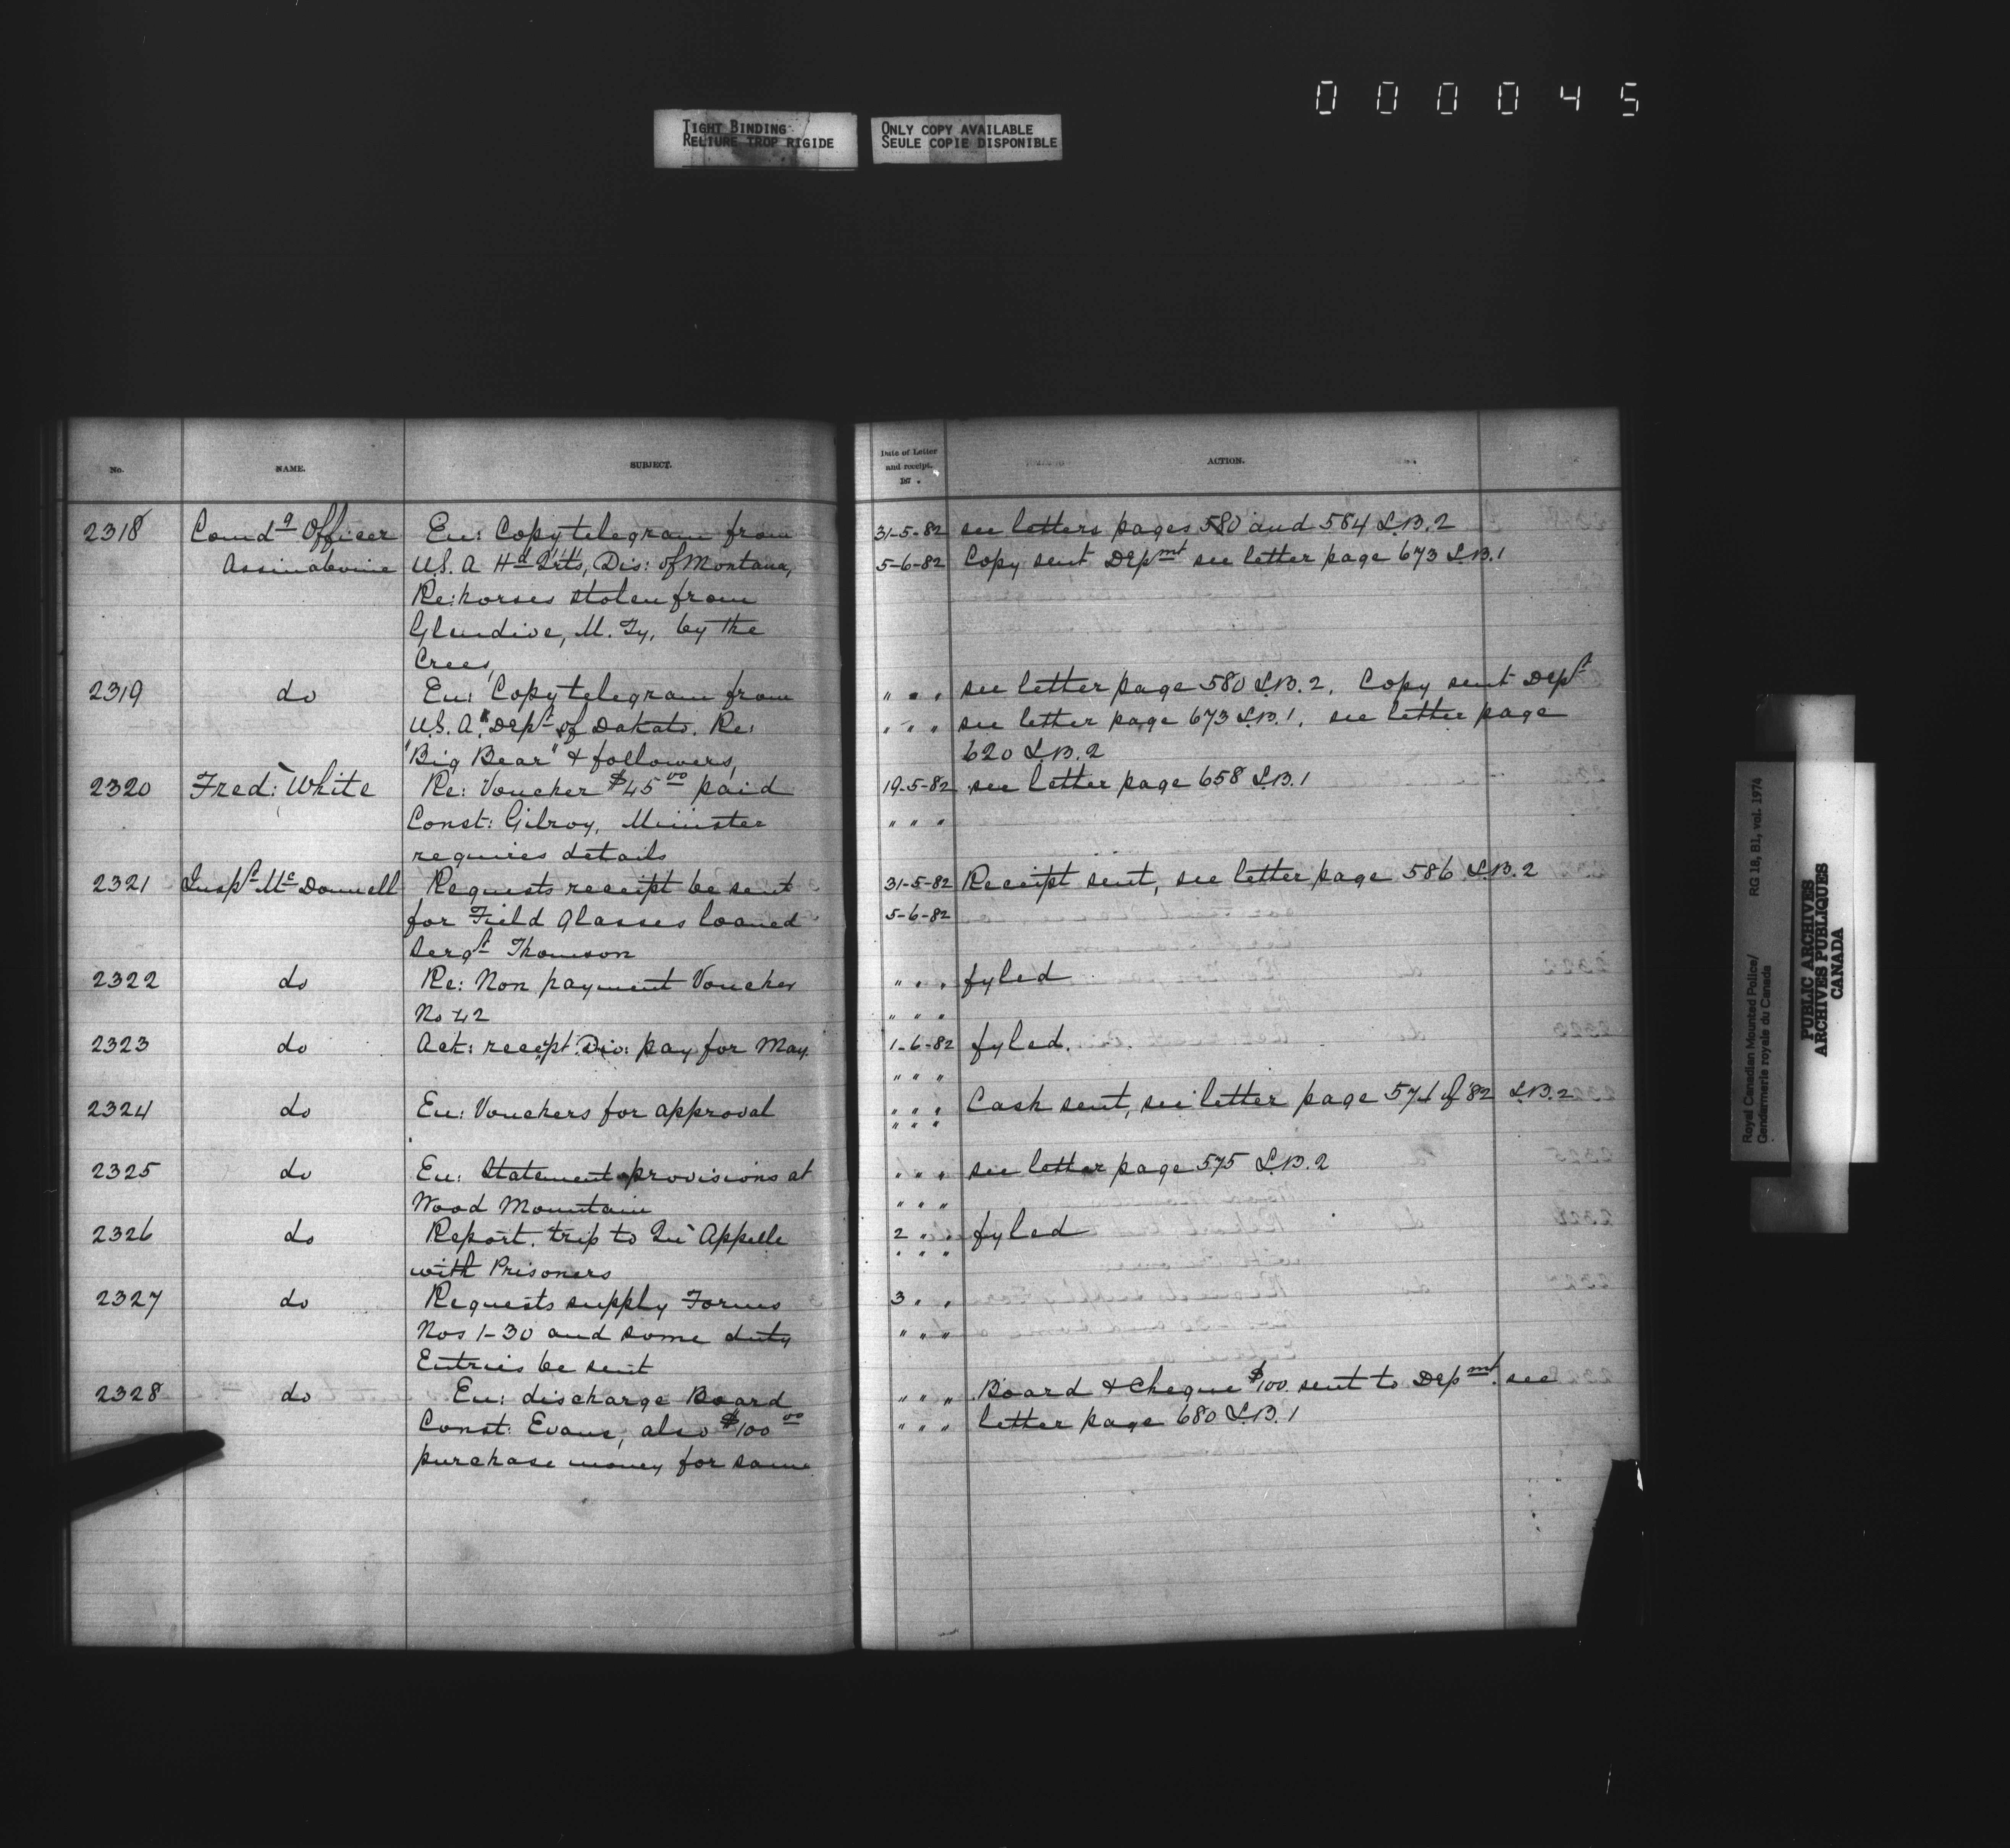 000045
TIGHT BINDING
RELIURE TROP RIGIDE
ONLY COPY AVAILABLE
SEULE COPIE DISPONIBLE
No. NAME. SUBJECT.
2318 Comdg Officer En: Copy telegram from
Assinaboine U.S.A Hd Qrts, Dis: of Montana,
Re: horses stolen from
Glendive, M. Ty, by the
Crees,
2319 do En: Copy telegram from
U.S.A. Dept of Dakato. Re:
"Big Bear" & followers,
2320 Fred: White Re: Voucher $45 00 paid
Const: Gilroy, Minister
requires details
2321 Inspr McDonnell Requests receipt be sent
for Field Glasses loaned
Sergt Thomson
2322 do Re: Non payment Voucher
No 42
2323 do Ack: receipt Div: pay for May
2324 do En: Vouchers for approval
2325 do En: Statement provisions at
Wood Mountain
2326 do Report. trip to Qu'Appelle
with Prisoners
2327 do Requests supply Forms
Nos 1-30 and some duty
Entries be sent
2328 do En: discharge Board
Const: Evans, also $100 00
purchase money for same
Date of Letter and receipt. 187 . ACTION.
31-5-82 see letters pages 580 and 584 L.B.2
5-6-82 Copy sent Depmt see letter page 673 L.B.1
" " " see letter page 580 L.B.2. Copy sent Dept
" " " see letter page 673 L.B.1. see letter page
620 L.B.2
19-5-82 see letter page 658 L.B.1
" " "
31-5-82 Receipt sent, see letter page 586 L.B.2
5-6-82
" " " fyled
" " "
1-6-82 fyled.
" " "
" " " Cash sent, see letter page 571 of '82 L.B.2
" " "
" " " see letter page 575 L.B.2
" " "
2 " " fyled
" " "
3 " "
" " "
" " " Board & Cheque $100. sent to Depmt. see
" " " letter page 680 L.B.1
Royal Canadian Mounted Police/ RG 18, B1, vol. 1974
Gendarmerie royale du Canada
PUBLIC ARCHIVES
ARCHIVES PUBLIQUES
CANADA